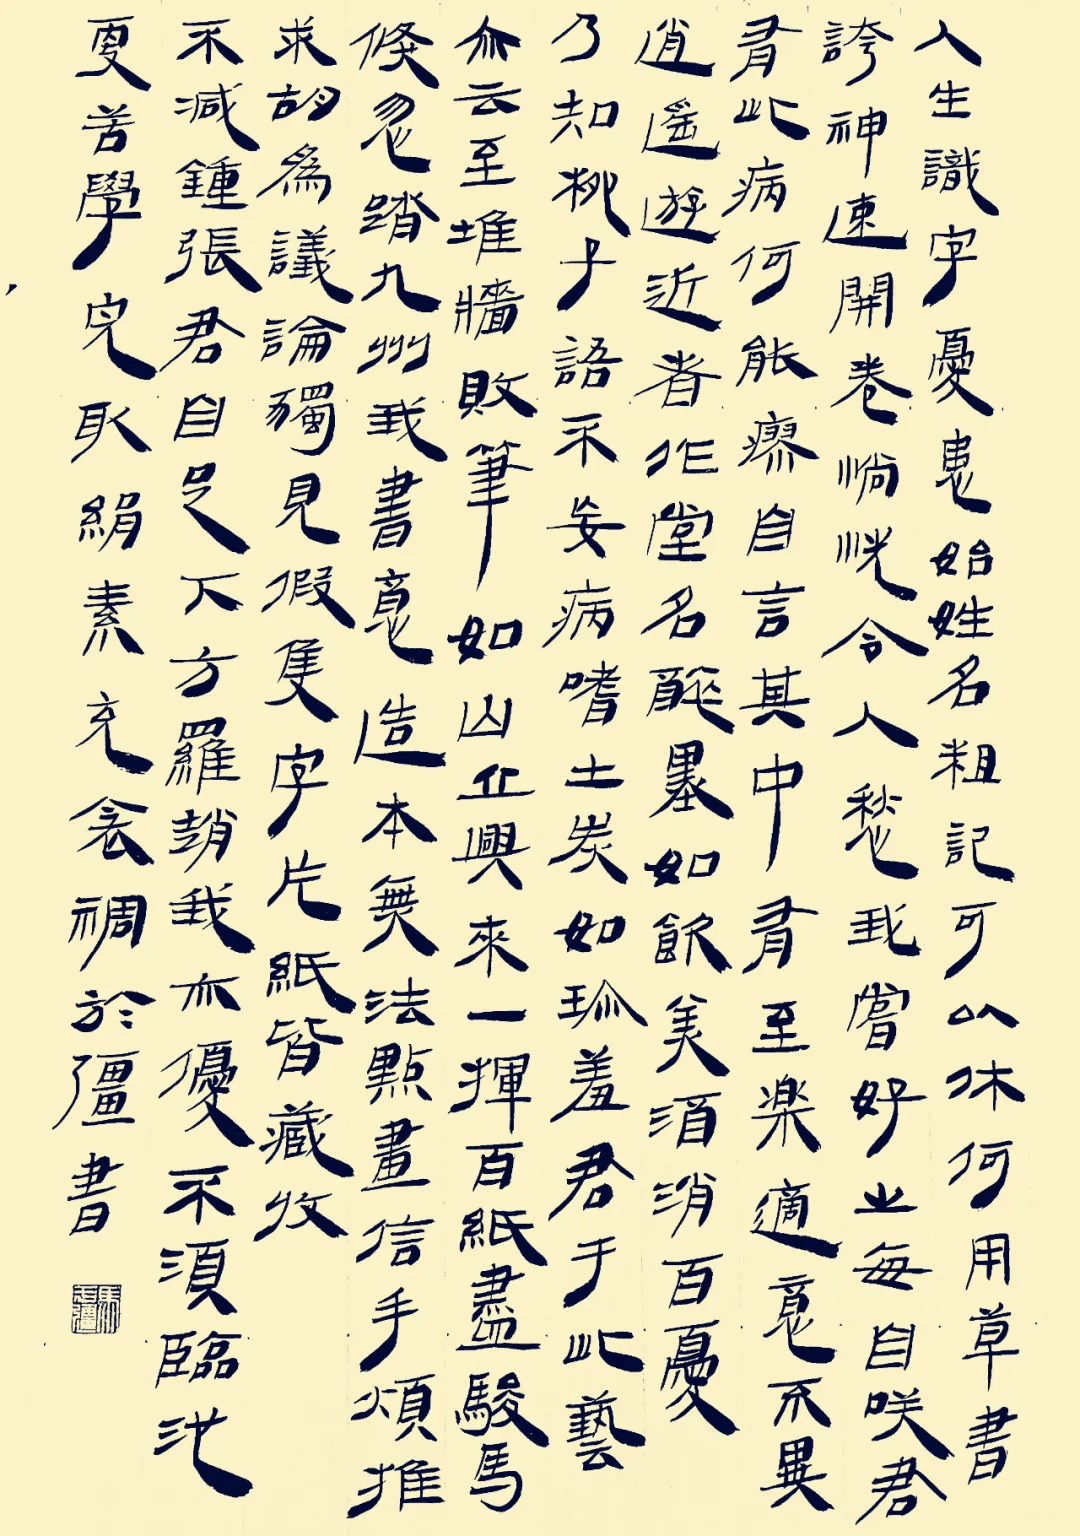 人生識字憂患始姓名粗記可以休何用草書
誇神速開卷惝恍令人愁我嘗好之每自咲君
有此病何能瘳自言其中有至楽適意不異
逍遙遊近者作堂名醉墨如飲美酒消百憂
乃知柳子語不妄病嗜土炭如珍羞君于此藝
亦云至堆牆敗筆如山丘興來一揮百紙盡駿馬
倏忽踏九州我書意造本無法點畫信手煩推
求胡為議論獨見假隻字片紙皆藏收
不減鍾張君自足下方羅趙我亦優不須臨池
更苦學完取絹素充衾裯於彊書